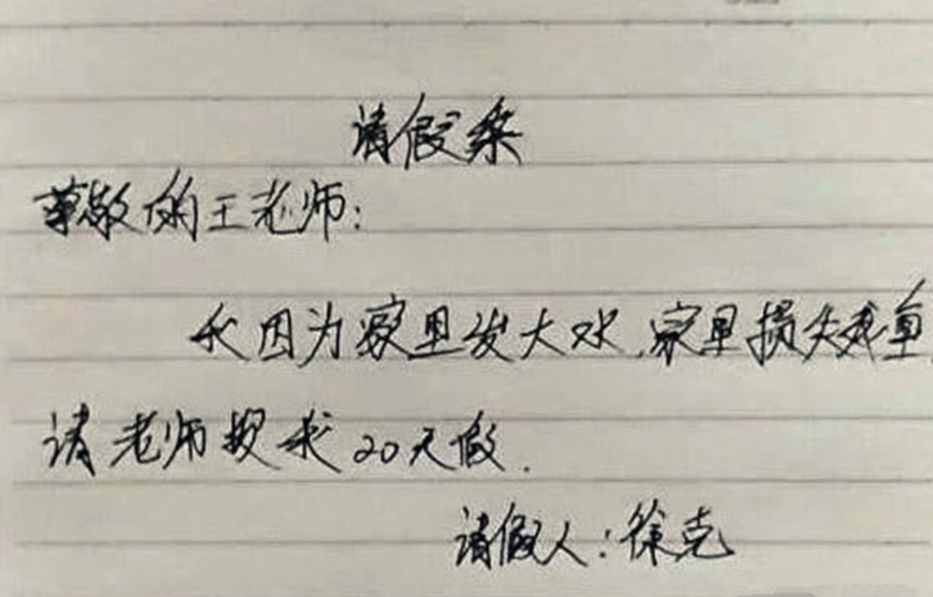 请假条
尊敬的王老师:
我因为家里发大水,家里损失残重
请老师授我20天假.
请假人:徐克